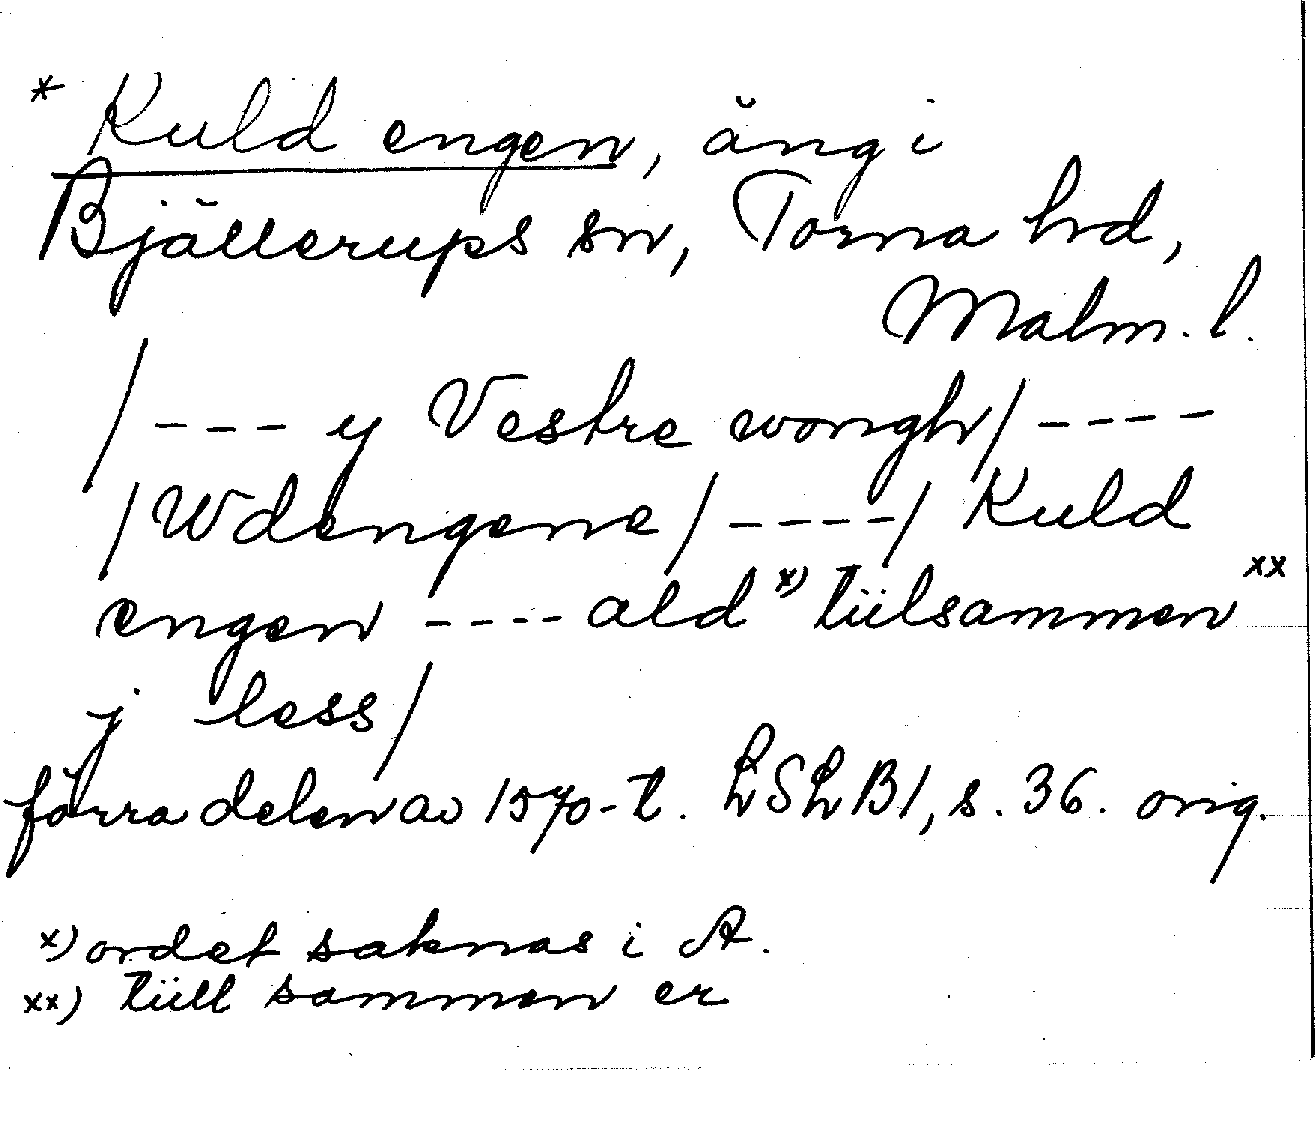 * Kuld engen, äng i
Bjällerups sn, Torna hd,
Malm. l.
/ - - - y Vestre wongh / - - - -
/ Wdengene / - - - - / Kuld
engen - - - - ald x) tiilsammen xx
j less /
förra delen av 1570-t. LSLB1, s. 36. orig.
x) ordet saknas i A.
xx) tüll sammen er